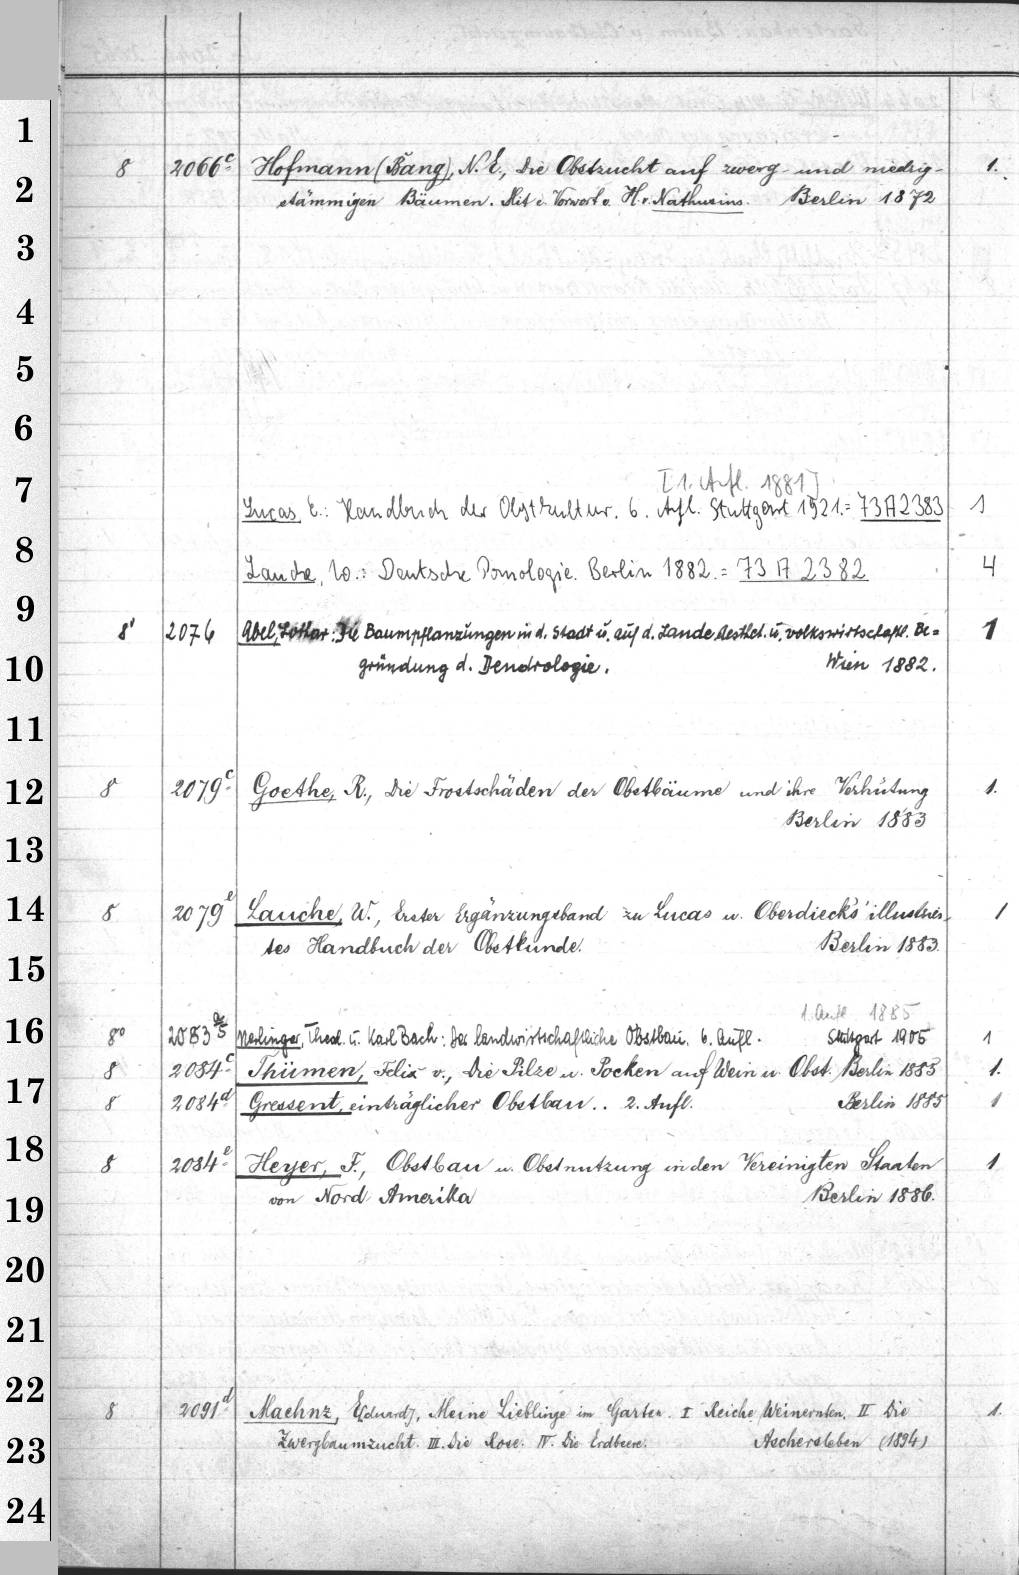 1
2
3
4
5
6
7
8
9
10
11
12
13
14
15
16
17
18
19
20
21
22
23
24
8 2066c Hofmann (Bang), N. E., Die Obstzucht auf zwerg- und niedrig- 1.
stämmigen Bäumen. Mit e. Vorwort v. H. v. Nathusius. Berlin 1872
[1. Aufl. 1881]
Lucas, E.: Handbuch der Obstkultur. 6. Aufl. Stuttgart 1921. = 73 A 2383 1
Lauche, W.: Deutsche Pomologie. Berlin 1882. = 73 A 2382 4
8' 2076 Abel, Lothar: Die Baumpflanzungen in d. Stadt u. auf d. Lande Aesthet. u. volkswirtschaftl. Be= 1
gründung d. Dendrologie. Wien 1882.
8 2079c Goethe, R., Die Frostschäden der Obstbäume und ihre Verhütung 1.
Berlin 1883
8 2079e Lauche, W., Erster Ergänzungsband zu Lucas u. Oberdieck's illustrir- 1
tes Handbuch der Obstkunde. Berlin 1883.
1. Aufl. 1885
8° 2083 Nerlinger, Theod. u. Karl Bach: Der landwirtschaftliche Obstbau. 6. Aufl. Stuttgart 1905 1
8 2084c Thümen, Felix v., Die Pilze u. Pocken auf Wein u. Obst. Berlin 1885 1.
8 2084d Gressent, einträglicher Obstbau.. 2. Aufl. Berlin 1885 1
8 2084e Heyer, F., Obstbau u. Obstnutzung in den Vereinigten Staaten 1
von Nord Amerika Berlin 1886.
8 2091d Maehnz, E[duard], Meine Lieblinge im Garten. I Reiche Weinernten. II Die 1.
Zwergbaumzucht. III. Die Rose. IV. Die Erdbeere. Aschersleben (1894)